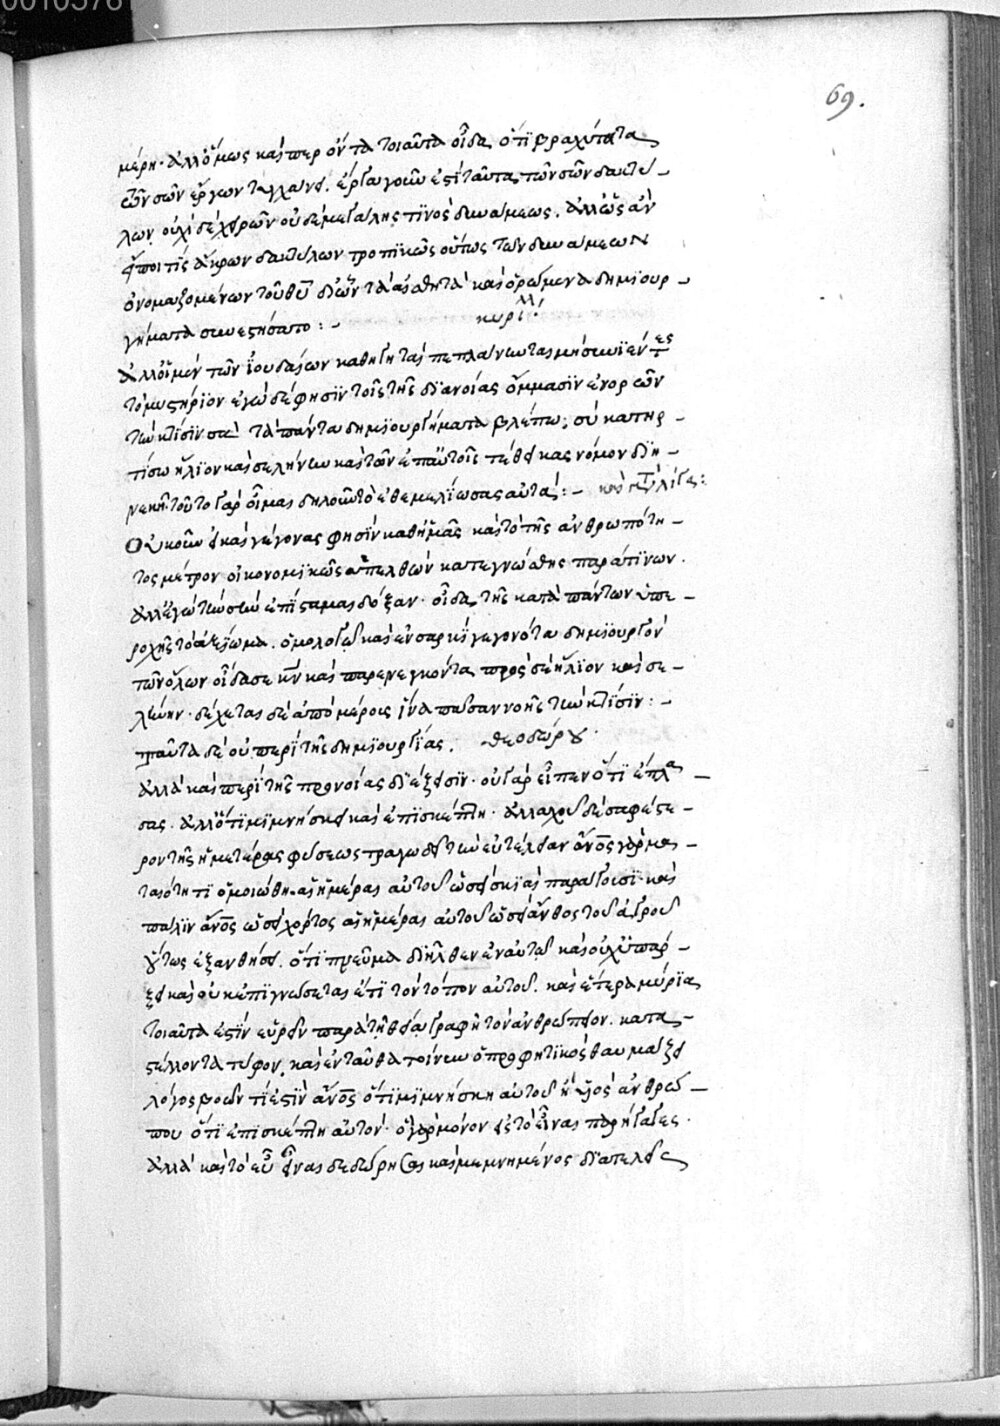 69.
μέρη· ἀλλ' ὅμως καίπερ ὄντα τοιαῦτα οἶδα ὅτι βραχύτατα
τῶν σῶν ἔργων τυγχάνει. ἔργα γοῦν ἐστὶ ταῦτα τῶν σῶν δακτύ-
λων, οὐχὶ δὲ χειρῶν οὐδὲ μεγάλης τινὸς δυνάμεως. ἀλλ' ὡς ἂν
εἴποι τίς ἄκρων δακτύλων τροπικῶς οὕτως τῶν δυνάμεων
ὀνομαζομένων τοῦ θυ δι' ὧν τὰ αἰσθητὰ καὶ ὁρώμενα δημιουρ-
γήματα συνεστήσατο:-
κυρίλλ
Ἀλλ' οἱ μὲν τῶν ἰουδαίων καθηγηταὶ πεπλάνωνται μὴ συνιέντες
τὸ μυστήριον ἐγὼ δὲ φησὶν τοῖς τῆς διανοίας ὄμμασιν ἐνορῶν
τὴν κτίσιν σοῦ τὰ πάντα δημιουργήματα βλέπω; σὺ κατηρ-
τίσω ἥλιον καὶ σελήνην καὶ τῶν ἐπ' αὐτοῖς τέθεικας νόμον διη-
νεκῆ. τοῦτο γὰρ οἶμαι δηλοῦν τὸ ἐθεμελίωσας αὐτά:-
Οὐκοῦν εἰ καὶ γέγονας φησὶν καθ' ἡμᾶς καὶ τὸ τῆς ἀνθρωπότη-
τος μέτρον οἰκονομικῶς ὑπελθὼν κατεγνώσθης παρά τινων.
ἀλλ' ἐγὼ τὴν σὴν ἐπίσταμαι δόξαν· οἶδα τῆς κατὰ πάντων ὑπε-
ροχῆς τὸ ἀξίωμα. ὁμολογῶ καὶ ἐν σαρκὶ γεγονότα δημιουργὸν
τῶν ὅλων οἶδά σε κν καὶ παρενεγκόντα πρὸς σὲ ἥλιον καὶ σε-
λήνην· δέχεται δὲ ἀπὸ μέρους ἵνα πᾶσαν νοῇς τὴν κτίσιν:-
ταῦτα δὲ οὐ περὶ τῆς δημιουργίας. θεοδώρου
ἀλλὰ καὶ περὶ τῆς προνοίας διέξεισιν· οὐ γὰρ εἶπεν ὅτι ἔπλα-
σας. ἀλλ' ὅτι μιμνήσκει καὶ ἐπισκέπτη· ἀλλαχοῦ δὲ σαφέστε-
ρον τῆς ἡμετέρας φύσεως τραγωδεῖ τὴν εὐτέλειαν ἄνος γὰρ μα-
ταιότητι ὁμοιώθη αἱ ἡμέραι αὐτοῦ ὡσεὶ σκιαὶ παράγουσι· καὶ
πάλιν ἄνος ὡσεὶ χόρτος αἱ ἡμέραι αὐτοῦ ὡσεὶ ἄνθος τοῦ ἀγροῦ
οὕτως ἐξανθήσει. ὅτι πνεῦμα διῆλθεν ἐν αὐτῷ καὶ οὐχ ὑπάρ-
ξει καὶ οὐκ ἐπιγνώσεται ἔτι τὸν τόπον αὐτοῦ. καὶ ἕτερα μύρια
τοιαῦτα ἐστὶν εὑρεῖν παρὰ τῇ θείᾳ γραφῇ τὸν ἀνθρώπειον. κατα-
στέλλοντα τύφον. καὶ ἐνταῦθα τοίνυν ὁ προφητικὸς θαυμάζει
λόγος βοῶν τί ἐστὶν ἄνος ὅτι μιμνήσκη αὐτοῦ ἢ υἱὸς ἀνθρώ-
που ὅτι ἐπισκέπτη αὐτόν· οὐ γὰρ μόνον εἰς τὸ εἶναι παρήγαγες.
ἀλλὰ καὶ τὸ εὖ εἶναι δεδώρησαι καὶ μεμνημένος διατελεῖς